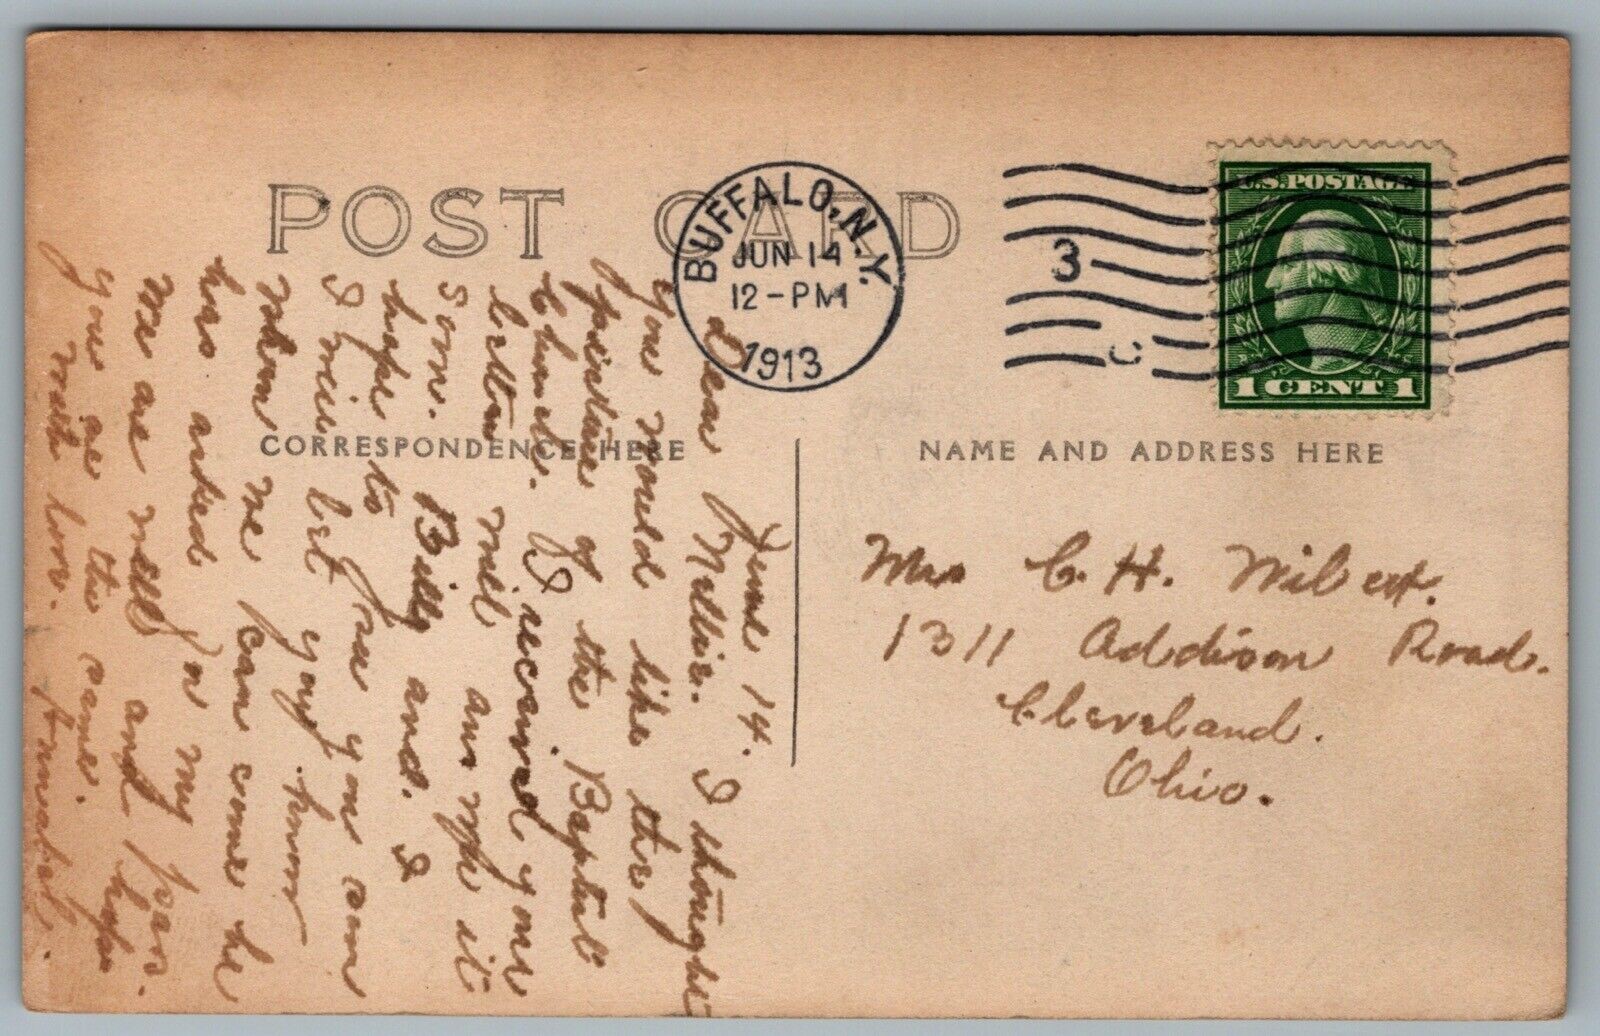 POST CARD
BUFFALO, N.Y.
JUN 14
12-PM
1913
3
U.S. POSTAGE
1 CENT 1
CORRESPONDENCE HERE
NAME AND ADDRESS HERE
June 14.
Dear Nellie. I thought
you would like the
picture of the Baptist
Church. I received your
letter will answer it
soon. Billy and. I
hope to see you soon
I will let you know
when we can come he
has asked
we are well and hope
you are the same.
with love.
Mrs C. H. Wilcox.
1311 Addison Road.
Cleveland.
Ohio.